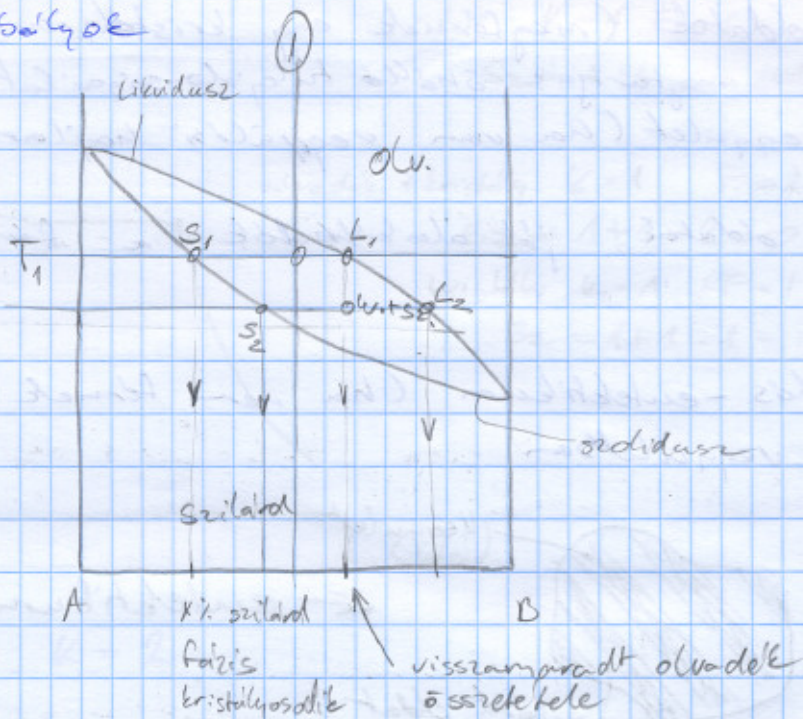 ①
Likvidusz
Olv.
S₁
L₁
T₁
olv.+sz.
L₂
S₂
szolidusz
Szilárd
A
B
x% szilárd
fázis
kristályosodik
visszamaradt olvadék
összetétele